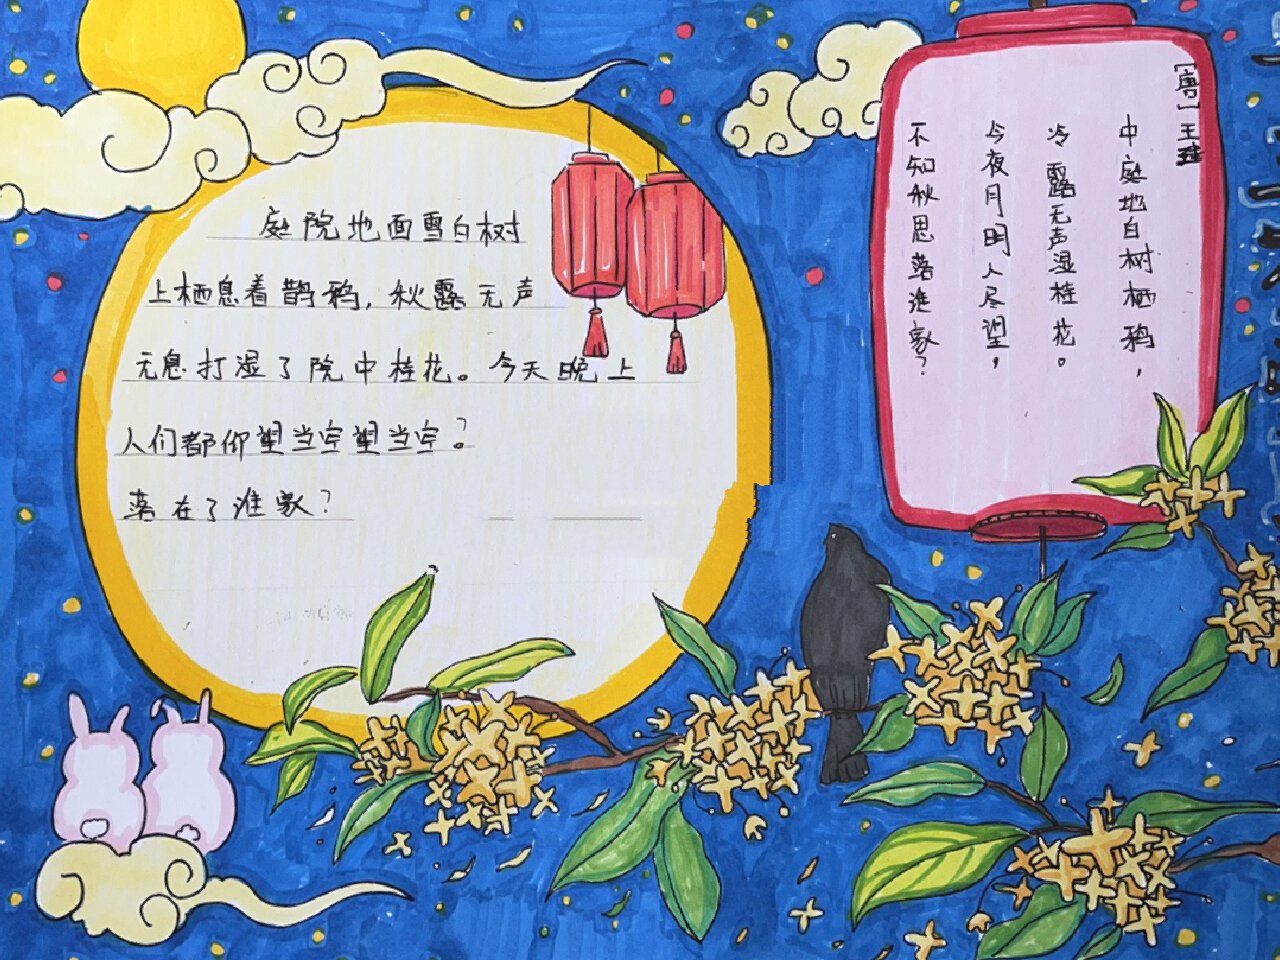 [唐]王建
中庭地白树栖鸦，
冷露无声湿桂花。
今夜月明人尽望，
不知秋思落谁家？
庭院地面雪白树
上栖息着鹊鸦，秋露无声
无息打湿了院中桂花。今天晚上
人们都仰望当空望当空？
落在了谁家？